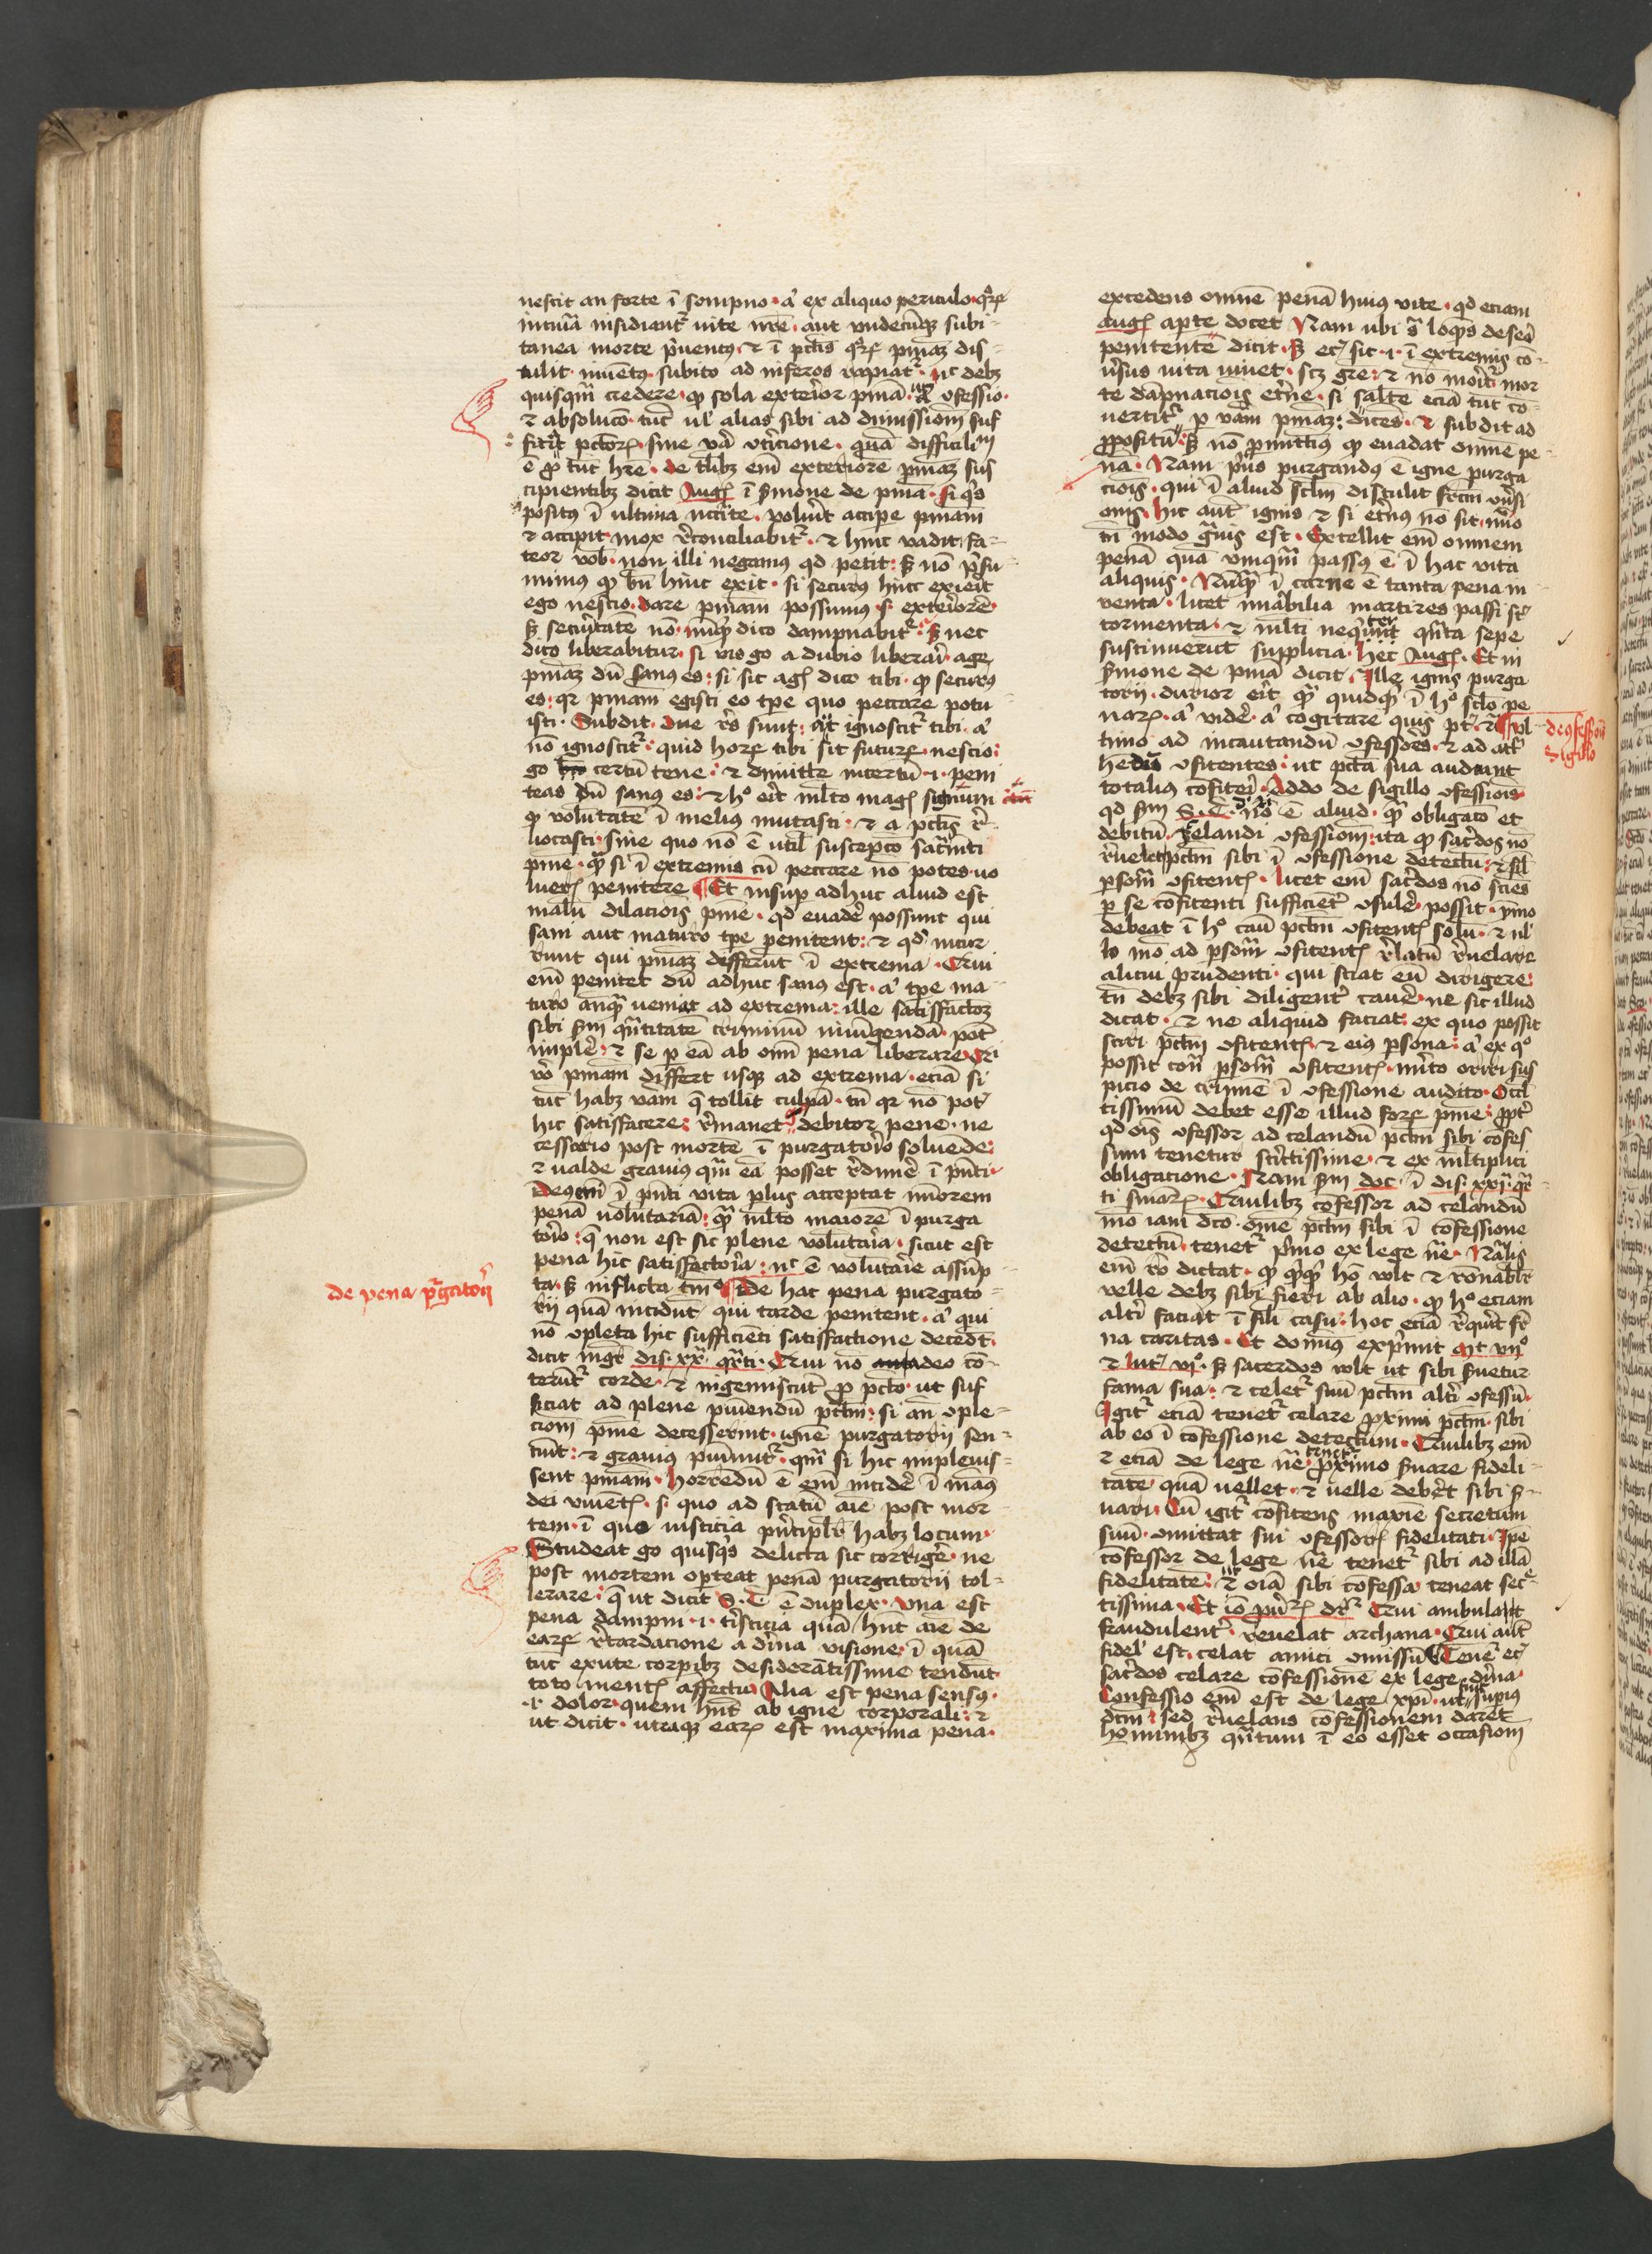 nescit an forte ī sompno · a͛ ex aliquo periculo · qrꝝ
insidiant᷑ uite nr̄e · aut vndecūqꝫ subi-
tanea morte p̄uentus · ⁊ ī pctīs qrꝝ pn̄iaꝫ dis-
tulit · inuentus · subito ad inferos rapiat᷑ · nc̄ debꝫ
quisqm̄ credere · ꝙ sola exterior pn̄ia · ꝯfessio ·
⁊ absoluco᷑ · tūc ul̓ alias sibi ad dimissionē suf
ficit pctōꝝ · sine ꝯtricione · quā difficili
ē tūc hr̄e · de tlībꝫ em̄ exteriorē pn̄iaꝫ sus
cipientibꝫ dicit Augꝰ ī sermone de pn̄ia · Si qs
positus ī ultima nccīte · voluit accipe pniam
⁊ accipit mox rᷓconciliabit᷑ · ⁊ hinc vadit · fa-
teor vob̄ · non illi negamus qd petit · sꝫ nō p̄su
mimus ꝙ bn̄ hinc exit · si securus hinc exierit
ego nescio · dare pn̄iam possumus · s. exteriorē
sꝫ securitatē nō · nūqd dico dampnabit᷑ · sꝫ nec
dico liberabitur · si vis go a dubio liberari · age
pn̄iaꝫ dū sanus es : si sic agꝭ dico tibi · ꝙ securus
es : qr pniam egisti eo tpe quo peccare potu
isti · Subdit · due rēs sunt : aut ignoscit᷑ tibi · a͛
nō ignoscit᷑ : quid horꝝ tibi sit futurꝝ · nescio :
go certū tene : ⁊ dimitte incertū · i · peni
teas dū sanus es : ⁊ hᵒ erit ml̄to magꝭ signum
ꝙ volūtatē ī melius mutasti · ⁊ a pctīs rᷓ-
uocasti · sine quo nō ē util̓ suscepto sacrᷓmti
pn̄ie · qᷓ si ī extremis cū peccare nō potes · uo
luerꝭ penitere Et insup adhuc aliud est
malū dilacōis pn̄ie · qd euadē possunt qui
sani aut maturo tpe penitent : ⁊ qd incur
runt qui pn̄iaꝫ differūt ī extrema · Qui
em̄ penitet dū adhuc sanus est · a͛ tpe ma
turo anqᷓ ueniat ad extrema : ille satisfactōꝫ
sibi sm̄ qntitatē criminū iniūgendā · pot̄
implē · ⁊ se p eā ab omī pena liberare · Qui
vo pn̄iam differt usqꝫ ad extrema · eciā si
tūc habꝫ vam q̄ tollit culpā · tn̄ qr nō pot̄
hic satisfacere : rᷓmanet debitor pene · ne
cessario post mortē ī purgatorio soluēde :
⁊ ualde grauius qm̄ eā posset rᷓdimē ī pn̄ti ·
Deus em̄ ī pn̄ti vita plus acceptat minorem
penā uolūtariā : qᷓ ml̄to maiorē ī purga
torio : q̄ non est sic plene volūtaria · sicut est
pena hic satisfactoria : nc̄ ē volūtarie assūp
ta · sꝫ inflicta tm̄ · De hac pena purgato-
rii quā incidūt qui tarde penitent · a͛ qui
nō ꝯpleta hic sufficiēti satisfactione decedt̄ ·
dicit mgr̄ dis · xxᵃ · qrᷓti · Qui nō adeo cō-
terūt᷑ corde · ⁊ ingemiscūt pro pctō · ut suf
ficiat ad plene puniendū pctm̄ : si an̄ ꝯple-
cionē pn̄ie decesserint · ignē purgatorii sen-
tiūt : ⁊ grauius puniunt᷑ · qm̄ si hic impleuis-
sent pniam · Horrēdū ē em̄ incidē ī man9
dei viuentꝭ · s. quo ad statū aīe post mor
tem · ī quo iusticia principlr̄ habꝫ locum ·
Studeat go quisqs delicta sic corrigē · ne
post mortem oporteat penā purgatorii tol-
lerare : q̄ ut dicit S. T ē duplex · vna est
pena dampni · i · tristicia quā hn̄t aīe de
earꝝ rᷓtardacione a diuina visione · ī quā
tūc exute corpibꝫ desiderātissime tendūt
toto mentꝭ affectu · Alia est pena sensus ·
· i · dolor · quem hn̄t ab igne corporali : ⁊
ut dicit · utraqꝫ earꝝ est maxima pena ·
de pena purgatorii
excedens omnē penā huius vite · qd eciam
augꝰ aperte docet Nam ubi sᷓ loqns de sero
penitente dicit · Sꝫ etc̄ sic · i · ī extremis cō-
uersus uita uiuet · scꝫ grē : ⁊ nō morit᷑ mor
te dāpnacois et̓ne · si saltē eciā tūc con-
uertit᷑ p vam pn̄iaꝫ : dices · ⁊ subdit ad
ppositū · Sꝫ nō pmittimus ꝙ euadat omnē pe
nā · Nam prius purgandus ē igne purga
cōis · qui ī aliud sclm̄ distulit fructm ꝯuersi
onis · Hic aut̄ ignis ⁊ si et̓nus nō sit · miro
tn̄ modo grauis est · Excellit em̄ omnem
penā quā vnqm̄ passus ē ī hac vita
aliquis · Nūqᷓ ī carne ē tanta pena in
uenta · licet mirabilia martires passi st̄
tormenta · ⁊ ml̄ti nequiter qn̄ta sepe
sustinuerūt supplicia · Hec Augꝰ · Et in
sermone de pn̄ia dicit · Ille ignis purga
torii · durior erit qᷓ quidqᷓ ī hᵒ sclō pe
narꝝ · a͛ vidē · a͛ cogitare quis pt̄ · Ul
timo ad incautandū ꝯfessores · ⁊ ad
hedīs ꝯfitentes : ut pctā sua audeant
totalius cōfiteri · Addo de sigillo ꝯfessionis
qd sm̄ S. T. nō ē aliud · qᷓ obligato᷑ et
debitū · celandi ꝯfessionē : ita ꝙ sacdos nō
rᷓuelet pctm̄ sibi ī ꝯfessione detectū : ⁊
psonā ꝯfitentꝭ · licet em̄ sacdos nō scies
p se cōfitenti sufficiēt ꝯsulē possit · ymo
debeat ī hᵒ casu pctm̄ ꝯfitentꝭ solū · ⁊ ul̓
lo mō ad psonā ꝯfitentꝭ rᷓlatū rᷓuelare
alicui prudenti · qui sciat eū dirigere :
tn̄ debꝫ sibi diligent̓ cauē · ne sic illud
dicat · ⁊ ne aliquid faciat · ex quo possit
sciri pctm̄ ꝯfitentꝭ · ⁊ eius psona : a͛ ex qᵒ
possit contᷓ psonā ꝯfitentꝭ · mito oriri sus
picio de crimine ī ꝯfessione audito · Occul
tissimū debet esse illud forꝝ pn̄ie : ppt̓
qd oīs ꝯfessor ad celandū pctm̄ sibi cōfes
sum tenetur strictissime · ⁊ ex ml̄tiplici
obligacione · Nam sm̄ doc · ī dis · xxi · qr
ti sniarꝝ · Quilibꝫ cōfessor ad celandū
mō iam dc̄o · om̄e pctm̄ sibi ī cōfessione
detectū · tenet᷑ primo ex lege nᷓe · Nālis
em̄ ro dictat · ꝙ qᷓqᷓ hō volt ⁊ rōnabilr̄
velle debꝫ sibi fieri ab alio · ꝙ hᵒ eciam
altī faciat ī sīli casu : hoc eciā rᷓquirit fr̄
na caritas · Et dominus exprimit Mt vijᵒ
⁊ Luc̄ viᵒ · Sꝫ sacerdos volt ut sibi seruetur
fama sua : ⁊ celet᷑ suū pctm̄ altī ꝯfessū ·
Igit᷑ eciā tenet᷑ celare proximi pctm̄ · sibi
ab eo ī cōfessione detectum · Quilibꝫ em̄
⁊ eciā de lege nᷓe tenet᷑ proximo seruare fideli-
tatē quā uellet · ⁊ uelle deberet sibi ser-
uari · Cū igit᷑ cōfitens maxīe secretum
suū · cōmittat sui ꝯfessorꝭ fidelitati · Ipē
cōfessor de lege nᷓe tenet᷑ sibi ad illā
fidelitatē : ut oīa sibi cōfessa teneat sec̄-
tissima · Et iō prouꝝ dr̄ Qui ambulat
fraudulent̓ · reuelat archana · Qui aut̄
fidel̓ est · celat amici cōmissū Tenet᷑ etc̄
sacdos celare cōfessionē ex lege diuina ·
Confessio em̄ est de lege xpī · ut supius
dc̄m · Sed rᷓuelans cōfessionem daret
hominibꝫ qn̄tum ī eo esset occasionē
de ꝯfessionis
sigillo